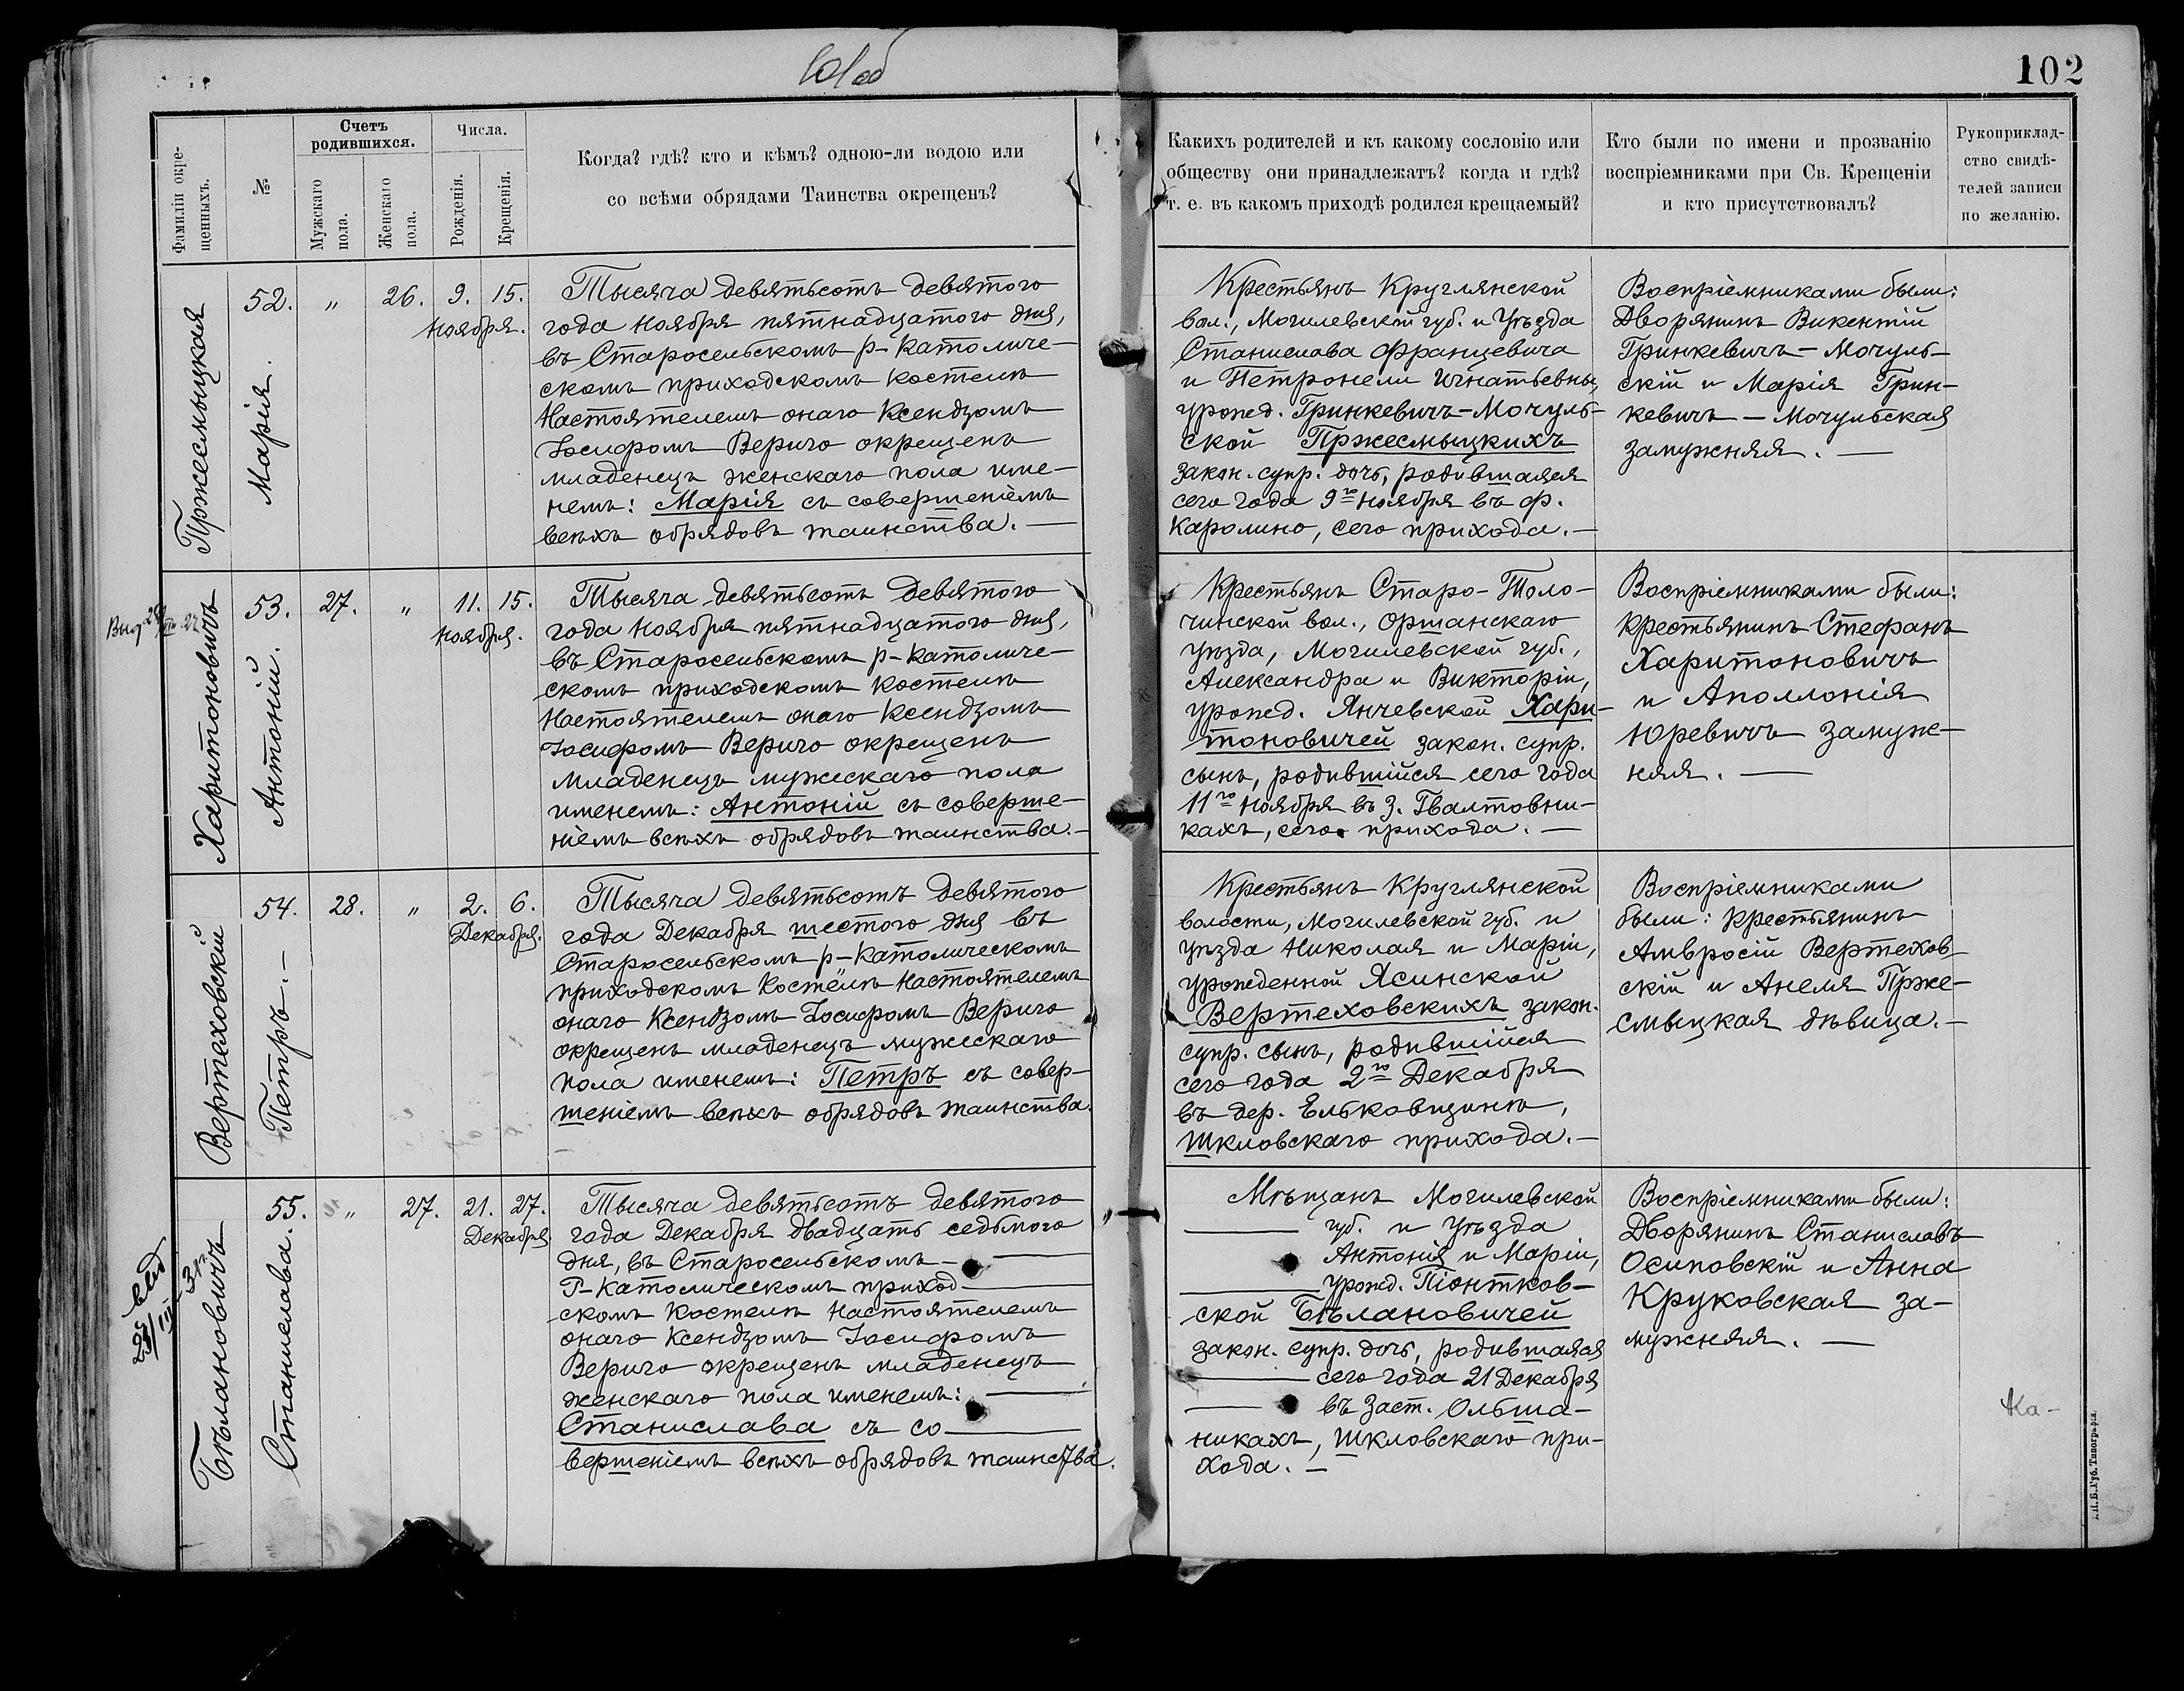 102
Фамиліи окре-
щенныхъ.
№
Счетъ
родившихся.
Мужскаго
пола.
Женскаго
пола.
Числа.
Рожденія.
Крещенія.
Когда? гдѣ? кто и кѣмъ? одною-ли водою или
со всѣми обрядами Таинства окрещенъ?
Какихъ родителей и къ какому сословію или
обществу они принадлежатъ? когда и гдѣ?
т. е. въ какомъ приходѣ родился крещаемый?
Кто были по имени и прозванію
воспріемниками при Св. Крещеніи
и кто присутствовалъ?
Рукоприклад-
ство свидѣ-
телей записи
по желанію.
Пржесмыцкая
Марія.
52. " 26. 9. 15.
Ноября.
Тысяча девятьсотъ девятого
года Ноября пятнадцатого дня,
въ Старосельскомъ р-католиче-
скомъ приходскомъ костелѣ
Настоятелемъ онаго Ксендзомъ
Іосифомъ Верихо окрещенъ
младенецъ женскаго пола име-
немъ: Марія съ совершеніемъ
всѣхъ обрядовъ таинства. —
Крестьянъ Круглянской
вол., Могилевской губ. и Уѣзда
Станислава Францевича
и Петронели Игнатьевны,
урожд. Гринкевичъ-Мочуль-
ской Пржесмыцкихъ
закон. супр. дочь, родившаяся
сего года 9го Ноября въ ф.
Каролино, сего прихода. —
Воспріемниками были:
Дворянинъ Викентій
Гринкевичъ-Мочуль-
скій и Марія Грин-
кевичъ-Мочульская
замужняя. —
Харитоновичъ
Антоній.
53. 27. " 11. 15.
Ноября.
Тысяча девятьсотъ девятого
года Ноября пятнадцатого дня,
въ Старосельскомъ р-католиче-
скомъ приходскомъ костелѣ
Настоятелемъ онаго Ксендзомъ
Іосифомъ Верихо окрещенъ
младенецъ мужескаго пола
именемъ: Антоній съ соверше-
ніемъ всѣхъ обрядовъ таинства. —
Крестьянъ Старо-Толо-
чинской вол., Оршанскаго
уѣзда, Могилевской губ.,
Александра и Викторіи,
урожд. Янчевской Хари-
тоновичей закон. супр.
сынъ, родившійся сего года
11го Ноября въ з. Гвалтовни-
кахъ, сего прихода. —
Воспріемниками были:
Крестьянинъ Стефанъ
Харитоновичъ
и Аполлонія
Юревичъ замуж-
няя. —
Вертеховскій
Петръ. —
54. 28. " 2. 6.
Декабря.
Тысяча девятьсотъ девятого
года Декабря шестого дня въ
Старосельскомъ р-католическомъ
приходскомъ костелѣ Настоятелемъ
онаго Ксендзомъ Іосифомъ Верихо
окрещенъ младенецъ мужескаго
пола именемъ: Петръ съ совер-
шеніемъ всѣхъ обрядовъ таинства.
Крестьянъ Круглянской
волости, Могилевской губ. и
уѣзда Николая и Маріи,
урожденной Ясинской
Вертеховскихъ закон.
супр. сынъ, родившійся
сего года 2го Декабря
въ дер. Ельковщинѣ,
Шкловскаго прихода. —
Воспріемниками
были: Крестьянинъ
Амвросій Вертехов-
скій и Анеля Прже-
смыцкая дѣвица. —
Бѣлановичъ
Станислава.
55. " 27. 21. 27.
Декабря
Тысяча девятьсотъ девятого
года Декабря двадцать седьмого
дня, въ Старосельскомъ —
Р-католическомъ приход-
скомъ костелѣ Настоятелемъ
онаго Ксендзомъ Іосифомъ
Верихо окрещенъ младенецъ
женскаго пола именемъ: —
Станислава съ со —
вершеніемъ всѣхъ обрядовъ таинства.
Мѣщанъ Могилевской
— губ. и Уѣзда
Антонія и Маріи,
— урожд. Піонтков-
ской Бѣлановичей
закон. супр. дочь, родившаяся
— сего года 21 Декабря
— въ заст. Ольша-
никахъ, Шкловскаго при-
хода. —
Воспріемниками были:
Дворянинъ Станиславъ
Осиповскій и Анна
Круковская за-
мужняя. —
Ка-